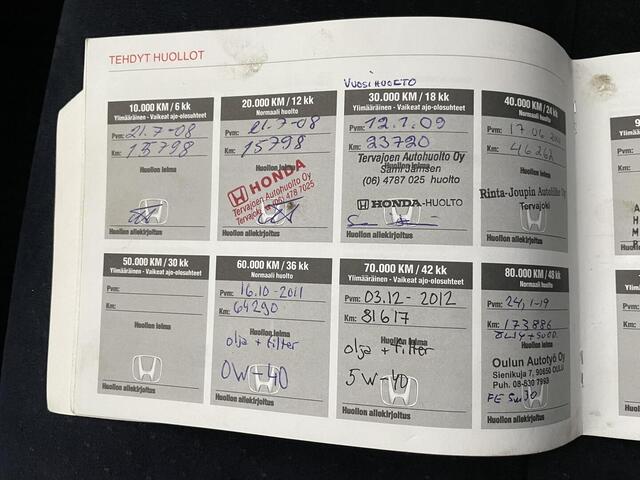 TEHDYT HUOLLOT
10.000 KM / 6 kk
Ylimääräinen - Vaikeat ajo-olosuhteet
Pvm: 21.7-08
Km: 15798
Huollon leima
Huollon allekirjoitus
20.000 KM / 12 kk
Normaali huolto
Pvm: 21.7-08
Km: 15798
Huollon leima
HONDA
Tervajoen Autohuolto Oy
Tervajoki (06) 478 7025
Huollon allekirjoitus
VUOSIHUOLTO
30.000 KM / 18 kk
Ylimääräinen - Vaikeat ajo-olosuhteet
Pvm: 12.1.09
Km: 23720
Tervajoen Autohuolto Oy
Sami Jämsen
(06) 4787 025 huolto
HONDA-HUOLTO
Huollon allekirjoitus
40.000 KM / 24 kk
Normaali huolto
Pvm: 17.06
Km:
Huollon leima
Rinta-Joupin Autoliike Oy
Tervajoki
Huollon allekirjoitus
50.000 KM / 30 kk
Ylimääräinen - Vaikeat ajo-olosuhteet
Pvm:
Km:
Huollon leima
Huollon allekirjoitus
60.000 KM / 36 kk
Normaali huolto
Pvm: 16.10-2011
Km: 64290
Huollon leima
olja + filter
0W-40
Huollon allekirjoitus
70.000 KM / 42 kk
Ylimääräinen - Vaikeat ajo-olosuhteet
Pvm: 03.12-2012
Km: 81617
Huollon leima
olja + filter
5W-40
Huollon allekirjoitus
80.000 KM / 48 kk
Normaali huolto
Pvm: 24,1-19
Km: 173886
Huollon leima
Oulun Autotyö Oy
Sienikuja 7, 90650 OULU
Puh. 08-530 7993
FE 5w30
Huollon allekirjoitus